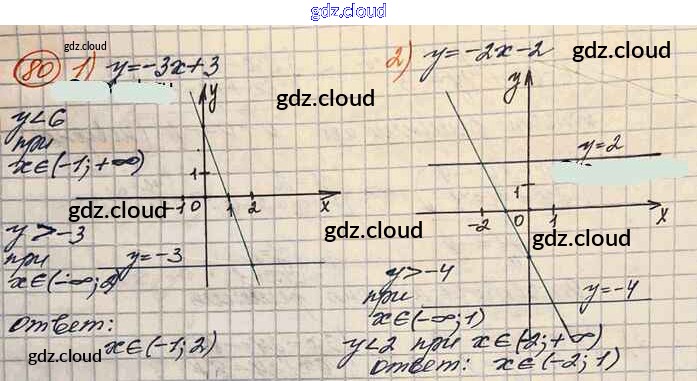 gdz.cloud
80 1) y=-3x+3
gdz.cloud
y<6
при
x∈(-1;+∞)
y>-3
при
x∈(-∞;2)
ответ:
x∈(-1;2)
y
1
-1 0 1 2 x
y=-3
gdz.cloud
gdz.cloud
gdz.cloud
2) y=-2x-2
gdz.cloud
y
y=2
1
-2 0 1 x
gdz.cloud
gdz.cloud
y>-4
при
x∈(-∞;1)
y=-4
y<2 при x∈(-2;+∞)
ответ: x∈(-2;1)
gdz.cloud
gdz.cloud